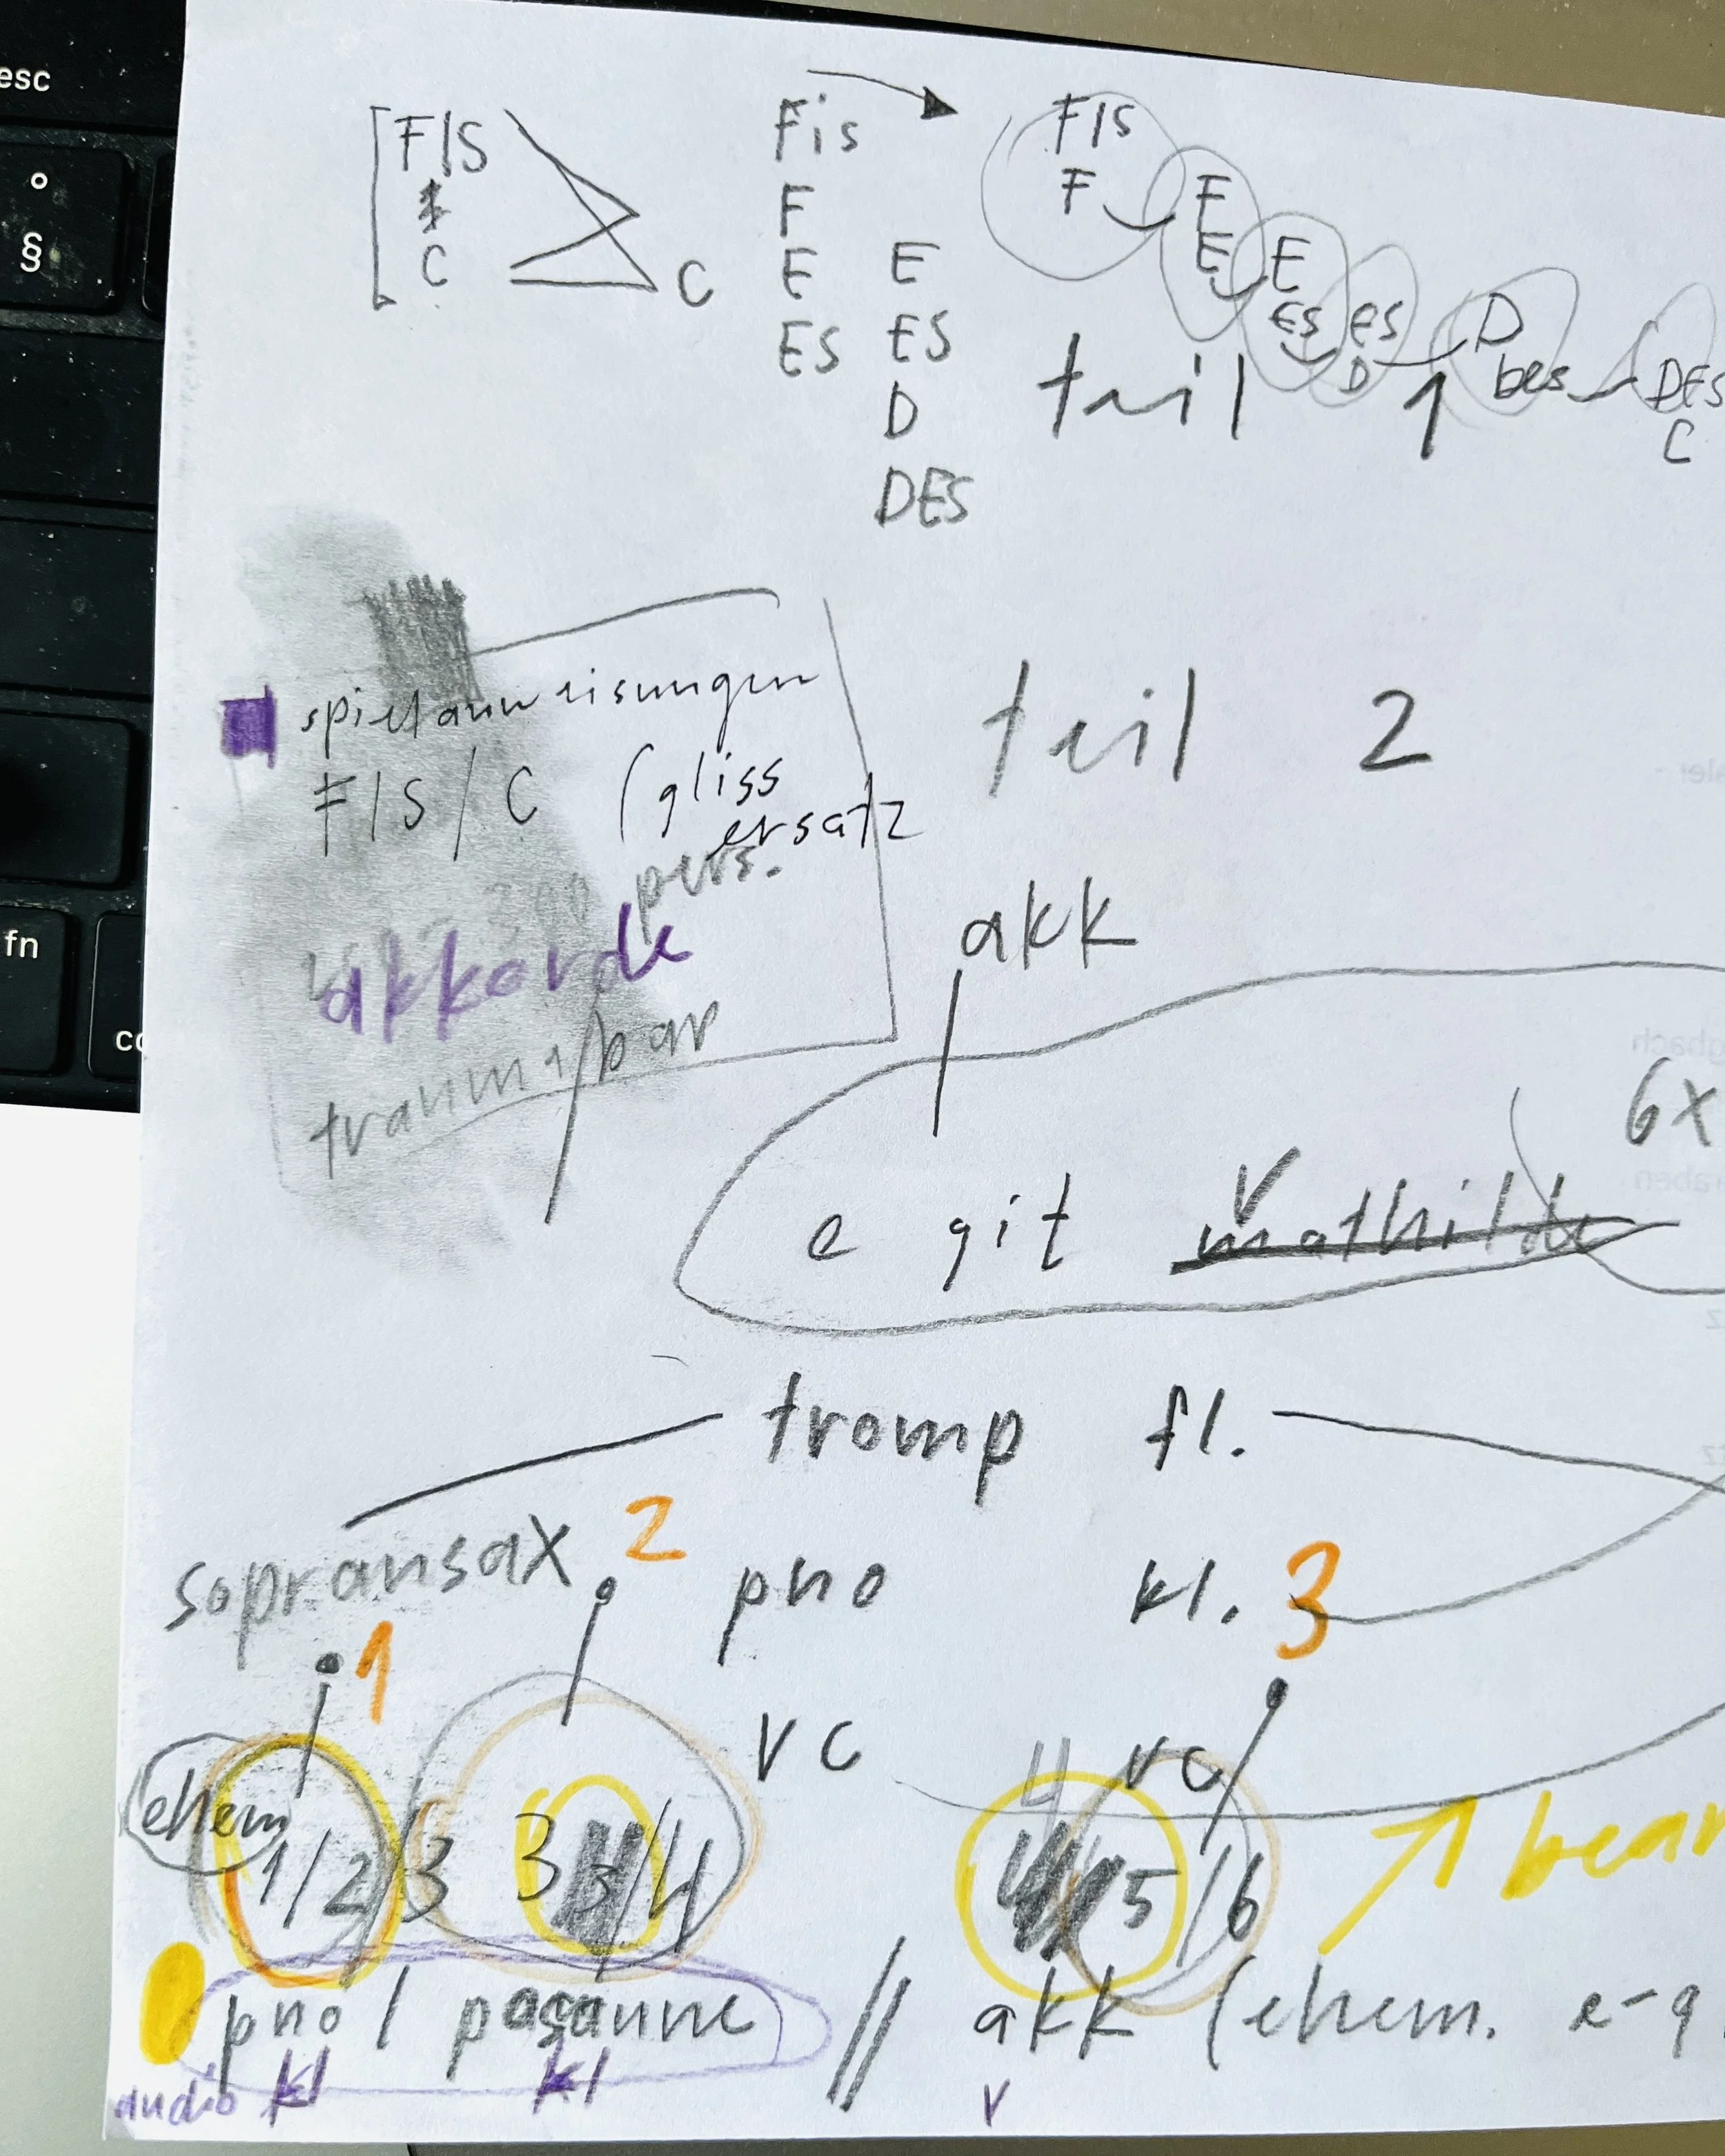 esc
°
§
fn
FIS
C
C
Fis
F
E
ES
E
ES
D
DES
FIS
F
F
E
E
ES
es
D
D
des
DES
C
teil 1
spielanweisungen
FIS / C (gliss
ersatz
pers.
akkorde
teil 2
akk
6x
e git mathilde
V
tromp fl.
sopransax 2 pno kl. 3
1
vc
vc
ehem
1/2 3 3 3/4
4
5/6
bear
pno / posaune // akk (ehem. e-g
audio kl kl v